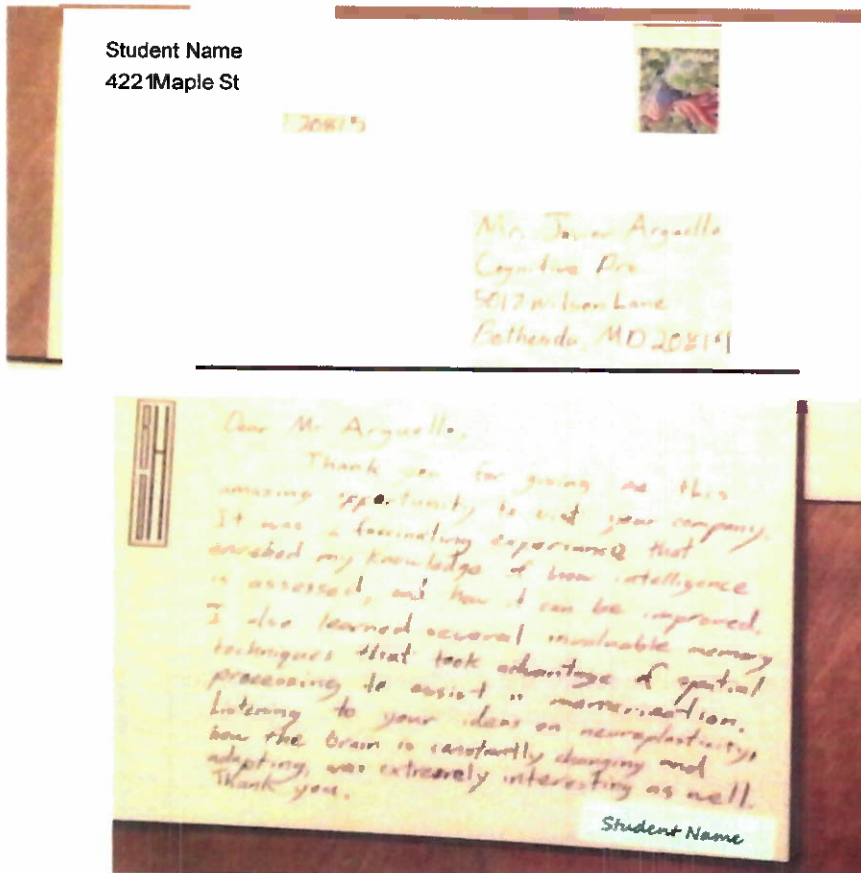 Student Name
4221Maple St
20815
Mr. Javier Arguello
Cognitive Pro
5017 Wilson Lane
Bethesda, MD 20814
Dear Mr Arguello,
Thank you for giving me this
amazing opportunity to visit your company.
It was a fascinating experience that
enriched my knowledge of how intelligence
is assessed, and how it can be improved.
I also learned several invaluable memory
techniques that took advantage of spatial
processing to assist in memorization.
Listening to your ideas on neuroplasticity,
how the brain is constantly changing and
adapting, was extremely interesting as well.
Thank you.
Student Name